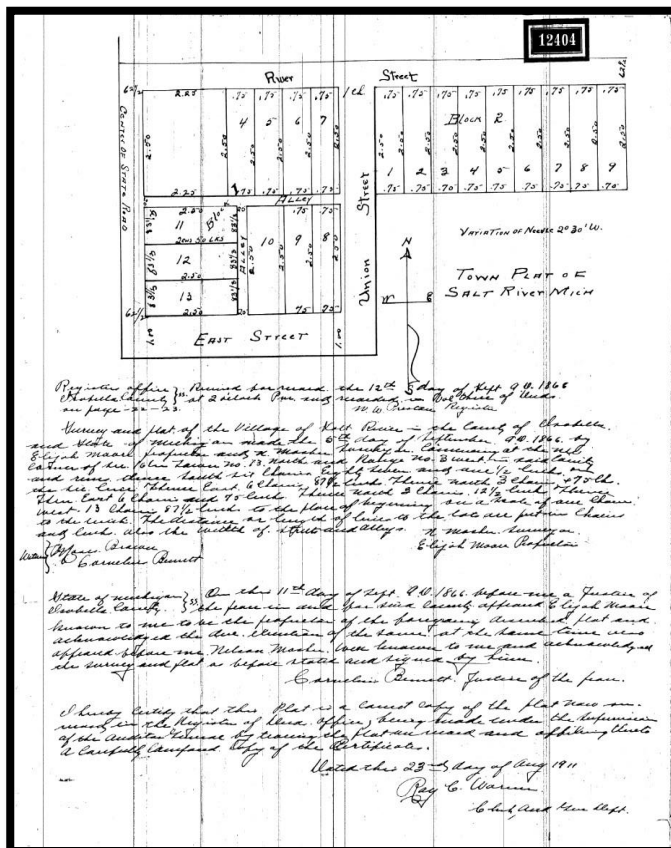 12404
River Street
62 1/2 2.25 .75 .75 .75 .75 1 ch .75 .75 .75 .75 .75 .75 .75 .75 .75 62 1/2
4 5 6 7
Block 2
Center of State Road
2.50 2.50 2.50 2.50 2.50 2.50
1 2 3 4 5 6 7 8 9
2.25 .75 .75 .75 .75 .75 .75 .75 .75 .75 .75 .75 .75 .75
Alley
2.50 Block 1 .75 .75
11
2 chs 50 lks
12
2.50
13
2.50
Alley
10 9 8
2.50 2.50 2.50
75 75
Union Street
62 1/2
East Street
1.00
N
W
Variation of Needle 2° 30' W.
Town Plat of
Salt River Mich
Register office } ss. Received for record the 12th day of Sept A.D. 1866
Isabella County at 2 o'clock P.M. and recorded in Vol three of Deeds
on page 22-23. M. W. Register
Survey and plat of the Village of Salt River in the County of Isabella
and State of Michigan made the 5th day of September A.D. 1866 by
Elijah Moore proprietor and N Mosher Surveyor Commencing at the N.W.
Corner of sec. 16 in Town No. 13 North and Range No. 3 West, in said County
and runs thence South six Chains Eighty seven and one 1/2 links on
the sec. line Thence East 6 Chains 87 1/2 links Thence north 3 Chains + 75 lks.
Then East 6 Chains and 75 links Thence north 3 Chains 12 1/2 links Thence
West 13 Chains 87 1/2 links to the place of beginning on a scale of one Chain
to the inch. The distance or length of lines to the lots are put in Chains
and links. Also the width of streets and alleys. N Mosher Surveyor
Elijah Moore Proprietor
Brown
Cornelius Bennett
State of Michigan } ss. On the 11th day of Sept. A.D. 1866 before me a Justice of
Isabella County the peace in and for said County appeared Elijah Moore
known to me to be the proprietor of the foregoing described plat and
acknowledged the due execution of the same, at the same time also
appeared before me Nelson Mosher Well known to me and acknowledged
the survey and plat as before stated and signed by him.
Cornelius Bennett. Justice of the peace.
I hereby certify that this Plat is a correct copy of the plat now on
record in the Register of Deeds office, being made under the supervision
of the Auditor General by tracing the plat on record and affixing thereto
a carefully compared copy of the Certificates.
Dated this 23rd day of Aug 1911
Ray C.
Clerk, Aud Gen Dept.